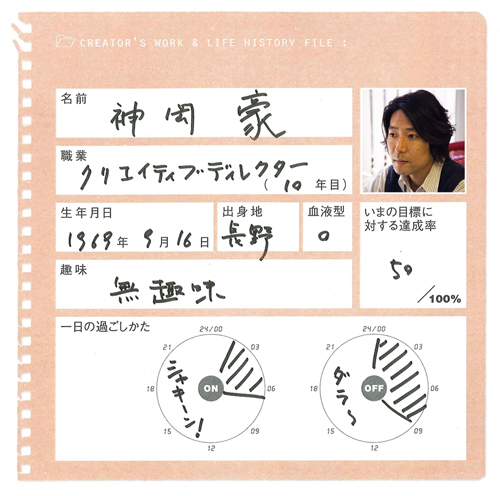 CREATOR'S WORK & LIFE HISTORY FILE :
名前
神岡 豪
職業
クリエイティブディレクター
( 10 年目)
生年月日
1969年 9月16日
出身地
長野
血液型
O
いまの目標に
対する達成率
50
/100%
趣味
無趣味
一日の過ごしかた
24/00
03
06
09
12
15
18
21
ON
シャキーン!
24/00
03
06
09
12
15
18
21
OFF
ダラ〜